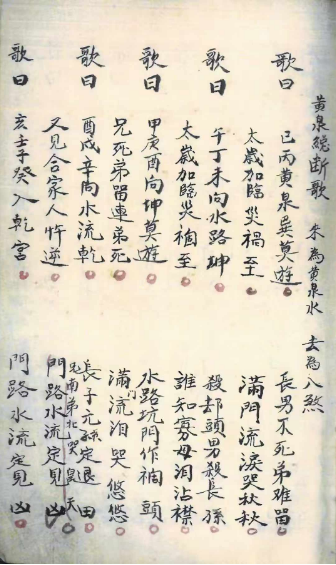 黃泉總断歌 来為黃泉水 去為八煞
歌曰 巳丙黃泉巽莫遊 長男不死弟难留
太歲加臨災禍至 滿門流淚哭秋秋
歌曰 午丁未向水路坤 殺却頭男殺長孫
太歲加臨災禍至 誰知寡母泪沾襟
歌曰 甲庚酉向坤莫遊 水路坑門作禍頭
兄死弟留連弟死 滿門流泪哭悠悠
歌曰 酉戍辛向水流乾 長子元孫定退田
兄南弟北哭皇天
又見合家人忤逆 門路水流定見凶
歌曰 亥壬子癸入乾宮 門路水流定見凶